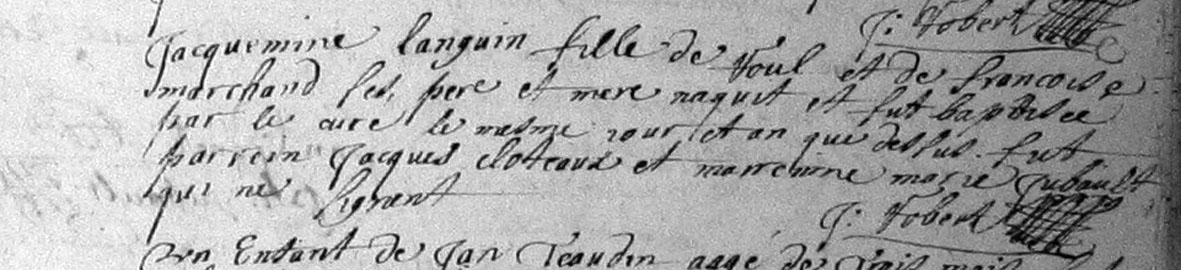 J: Vobert
Jacquemine languin fille de Voul et de francoise
marchand ses, pere et mere naquit et fut baptisee
par le cure le mesme iour et an que dessus. fut
parrein Jacques cloteaux et marreinne marie Jubault
qui ne signent
J: Vobert
Un Enfant de Jan Teaudin aagé de trois mois